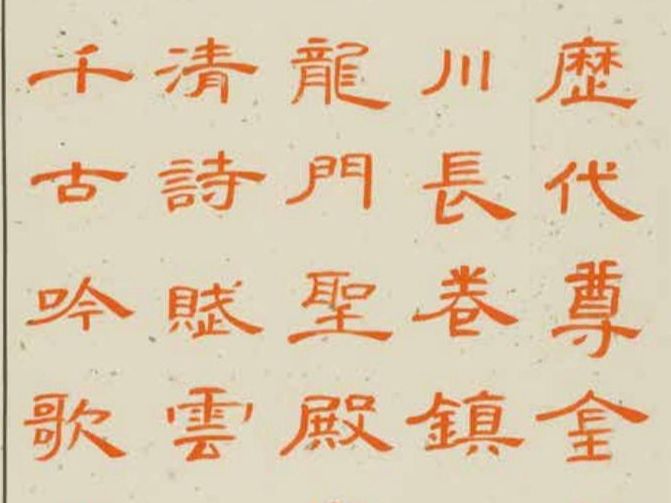 歷代尊金
川長卷鎮
龍門聖殿
清詩賦雲
千古吟歌